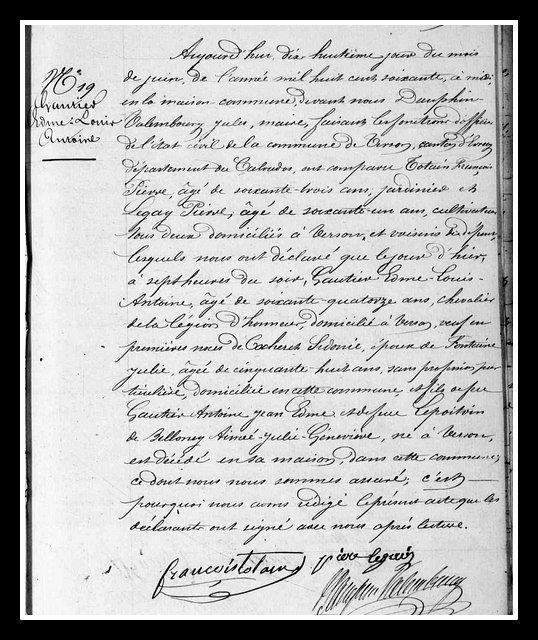 N° 19
Gautier
Edme-Louis
Antoine
Aujourd'hui dix huitième jour du mois
de juin, de l'année mil huit cent soixante, à midi,
en la maison commune, devant nous Dauphin
Palembourg Jules, maire, faisant les fonctions d'officier
de l'état civil de la commune de Verson, canton d'Evrecy
département du Calvados, ont comparu Totain François
Pierre, âgé de soixante-trois ans, jardinier et
Legay Pierre, âgé de soixante-un ans, cultivateur
tous deux domiciliés à Verson, et voisins du défunt,
lesquels nous ont déclaré que le jour d'hier,
à sept heures du soir, Gautier Edme-Louis-
Antoine, âgé de soixante quatorze ans, chevalier
de la Légion d'honneur, domicilié à Verson, veuf en
premières noces de Sidonie, époux de Fontaine
Julie, âgée de cinquante-huit ans, sans profession par
ticulière, domiciliée en cette commune, et fils de feu
Gautier Antoine Jean Edme et de feue Lepoitvin
de Belloney Aimée-Julie-Geneviève, né à Verson,
est décédé en sa maison, dans cette commune;
ce dont nous nous sommes assuré; c'est
pourquoi nous avons rédigé le présent acte que les
déclarants ont signé avec nous après lecture.
francois totain pierre legay